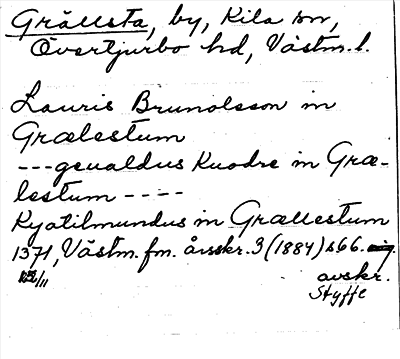 Grällsta, by, Kila sn,
Övertjurbo hd, Västm. l.
Lauris Brunolsson in
Grælestum
---geualdus Kuodre in Græ-
lestum ----
Kyatilmundus in Grællestum
1371, Västm. fm. årsskr. 3 (1884) s 66.
22/11 avskr.
Styffe